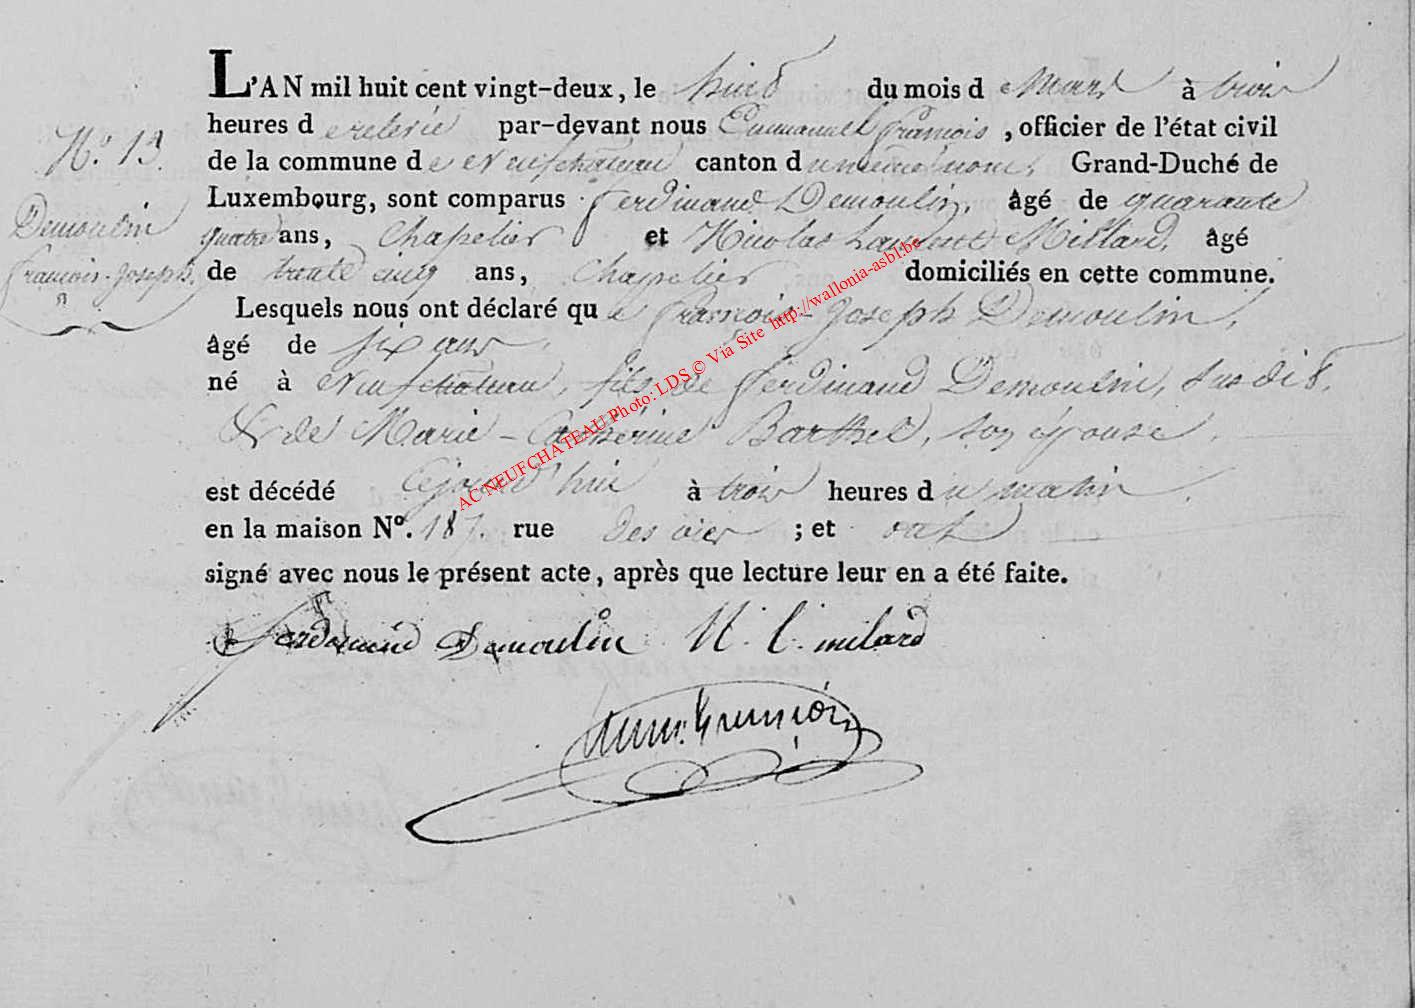 L'AN mil huit cent vingt-deux, le huit du mois d Mars à trois
heures d e relevée par-devant nous Emmanuel François, officier de l'état civil
N.° 13.
de la commune d e Neufchâteau canton du même nom, Grand-Duché de
Luxembourg, sont comparus Ferdinand Demoulin, âgé de quarante
Demoulin
quatre ans, Chapelier et Nicolas Laurent Millard, âgé
François-Joseph.
de trente cinq ans, Chapelier domiciliés en cette commune.
Lesquels nous ont déclaré qu e François-Joseph Demoulin,
âgé de six ans,
né à Neufchâteau, fils de Ferdinand Demoulin, susdit,
& de Marie-Cathérine Barthel, son épouse,
est décédé Cejourd'hui à trois heures du matin,
en la maison N°. 187. rue ; et ont
signé avec nous le présent acte, après que lecture leur en a été faite.
Ferdinand Demoulin N. L. milard
Emm. François
AC NEUFCHATEAU Photo: LDS © Via Site http://wallonia-asbl.be